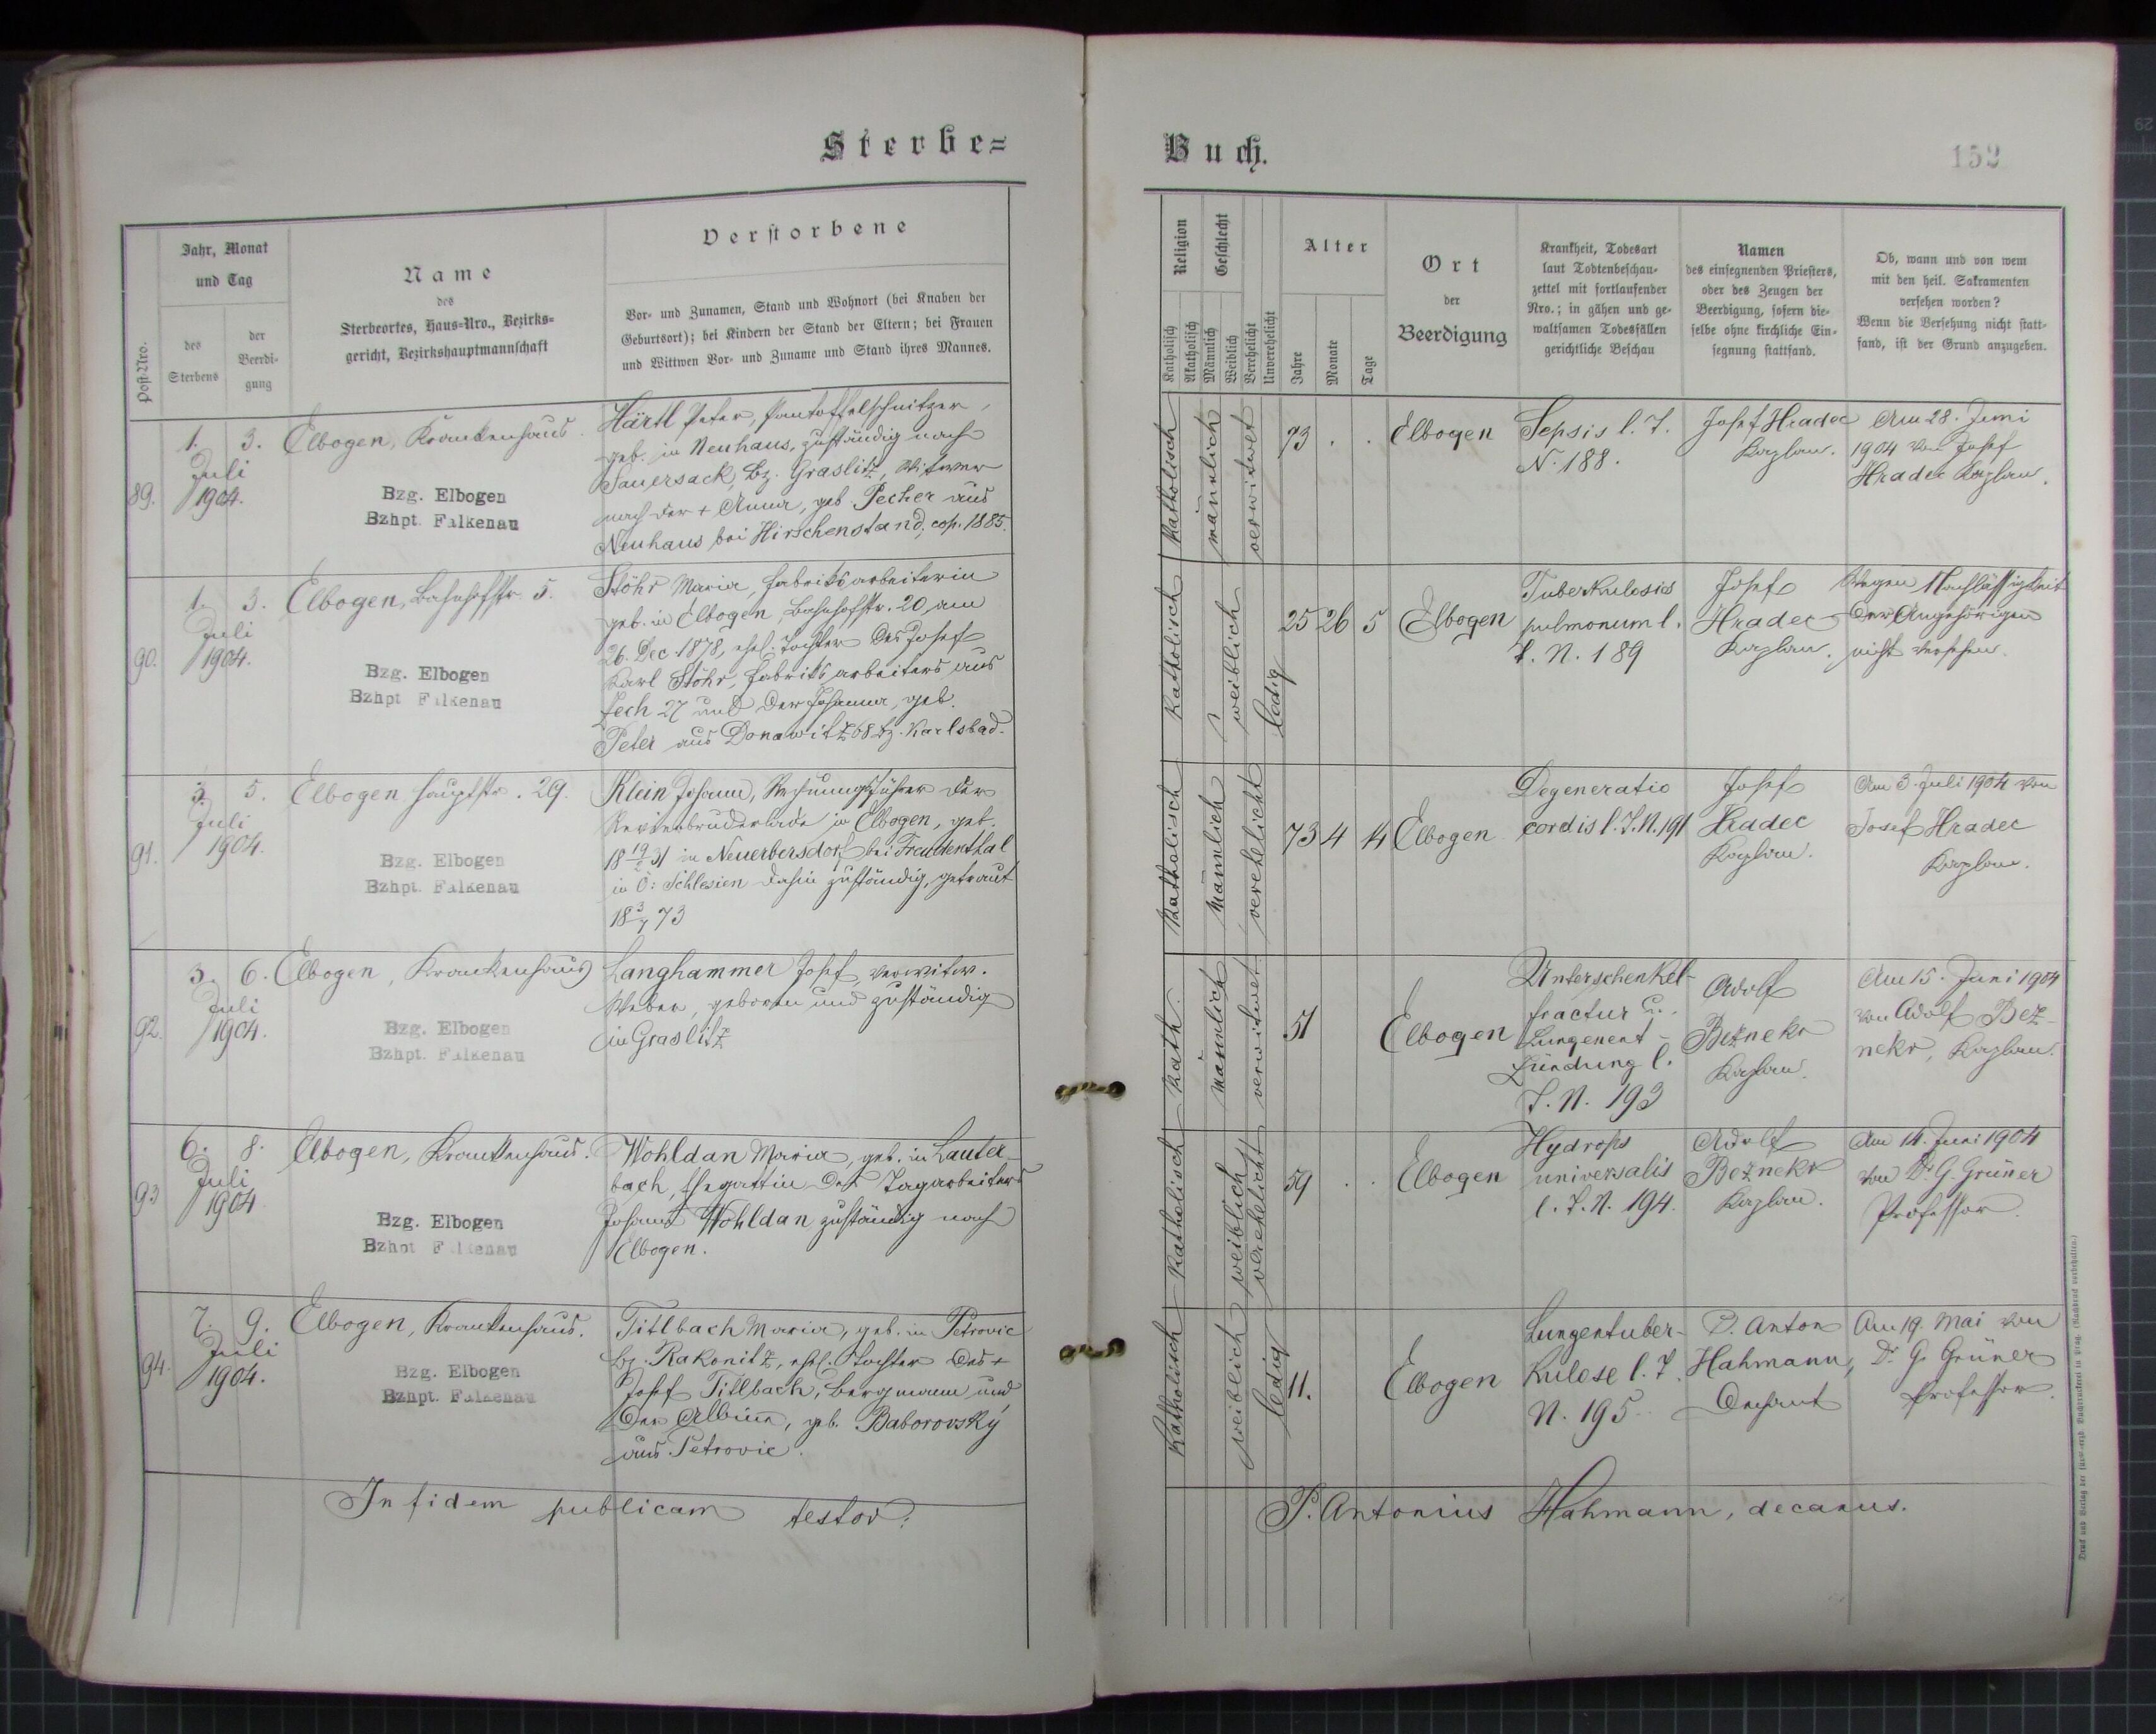 Sterbe=
Buch.
152
Post-Nro.
Jahr, Monat
und Tag
des
Sterbens
der
Beerdi-
gung
Name
des
Sterbeortes, Haus=Nro., Bezirks=
gericht, Bezirkshauptmannschaft
Verstorbene
Vor- und Zunamen, Stand und Wohnort (bei Knaben der
Geburtsort); bei Kindern der Stand der Eltern; bei Frauen
und Wittwen Vor- und Zuname und Stand ihres Mannes.
Religion
Katholisch
Akatholisch
Geschlecht
Männlich
Weiblich
Verehelicht
Unverehelicht
Alter
Jahre
Monate
Tage
Ort
der
Beerdigung
Krankheit, Todesart
laut Todtenbeschau-
zettel mit fortlaufender
Nro.; in gähen und ge-
waltsamen Todesfällen
gerichtliche Beschau
Namen
des einsegnenden Priesters,
oder des Zeugen der
Beerdigung, sofern die-
selbe ohne kirchliche Ein-
segnung stattfand.
Ob, wann und von wem
mit den heil. Sakramenten
versehen worden?
Wenn die Versehung nicht statt-
fand, ist der Grund anzugeben.
89.
1. 3.
Juli
1904.
Elbogen, Krankenhaus
Bzg. Elbogen
Bzhpt. Falkenau
Härtl Peter, Pantoffelschnitzer,
geb. in Neuhaus, zuständig nach
Sauersack, Bz. Graslitz, Witwer
nach der + Anna, geb. Pecher aus
Neuhaus bei Hirschenstand, cop. 1885.
Katholisch
männlich
verwitwet
73 . .
Elbogen
Sepsis l. T.
N. 188.
Josef Hradec
Kaplan.
Am 28. Juni
1904 von Josef
Hradec Kaplan.
90.
1. 3.
Juli
1904.
Elbogen, Bahnhofstr. 5.
Bzg. Elbogen
Bzhpt Falkenau
Stöhr Maria, Fabriksarbeiterin
geb. in Elbogen, Bahnhofstr. 20 am
26. Dec 1878, ehel. Tochter des Josef
Karl Stöhr, Fabriksarbeiters aus
Zech 27 und der Johanna, geb.
Peter aus Donawitz 68 Bz. Karlsbad.
Katholisch
weiblich
ledig
25 26 5
Elbogen
Tuberkulosis
pulmonum l.
T. N. 189
Josef
Hradec
Kaplan.
Wegen Nachlässigkeit
der Angehörigen
nicht versehen.
91.
3. 5.
Juli
1904.
Elbogen Hauptstr. 29.
Bzg. Elbogen
Bzhpt. Falkenau
Klein Johann, Rechnungsführer der
Revierbruderlade in Elbogen, geb.
18 19/2 31 in Neuerbersdorf bei Freudenthal
in Ö: Schlesien dahin zuständig, getraut
18 3/7 73
Katholisch
männlich
verehelicht
73 4 14
Elbogen
Degeneratio
cordis l. T. N. 191
Josef
Hradec
Kaplan.
Am 3. Juli 1904 von
Josef Hradec
Kaplan.
92.
3. 6.
Juli
1904.
Elbogen, Krankenhaus
Bzg. Elbogen
Bzhpt. Falkenau
Langhammer Josef, verwitw.
Weber, geboren und zuständig
in Graslitz
Kath.
männlich
verwitwet
51
Elbogen
Unterschenkel-
fractur u.
Lungenent-
zündung l.
T. N. 193
Adolf
Bezneks
Kaplan.
Am 15. Juni 1904
von Adolf Bez-
neks, Kaplan.
93
6. 8.
Juli
1904
Elbogen, Krankenhaus.
Bzg. Elbogen
Bzhpt Falkenau
Wohldan Maria, geb. in Lauter-
bach, Ehegattin des Tagarbeiters
Johann Wohldan zuständig nach
Elbogen.
Katholisch
weiblich
verehelicht
59 . .
Elbogen
Hydrops
universalis
l. T. N. 194.
Adolf
Bezneks
Kaplan.
Am 14. Juni 1904
von Dr. G. Grüner
Professor.
94.
7. 9.
Juli
1904.
Elbogen, Krankenhaus.
Bzg. Elbogen
Bzhpt. Falkenau
Titlbach Maria, geb. in Petrovic
Bz. Rakonitz, ehel. Tochter des +
Josef Titlbach, Bergmann und
der Albina, geb. Baborovský
aus Petrovic.
Katholisch
weiblich
ledig
11.
Elbogen
Lungentuber-
kulose l. T.
N. 195
P. Anton
Hahmann,
Dechant
Am 19. Mai von
Dr. G. Grüner
Professor.
In fidem publicam testor:
P. Antonius Hahmann, decanus.